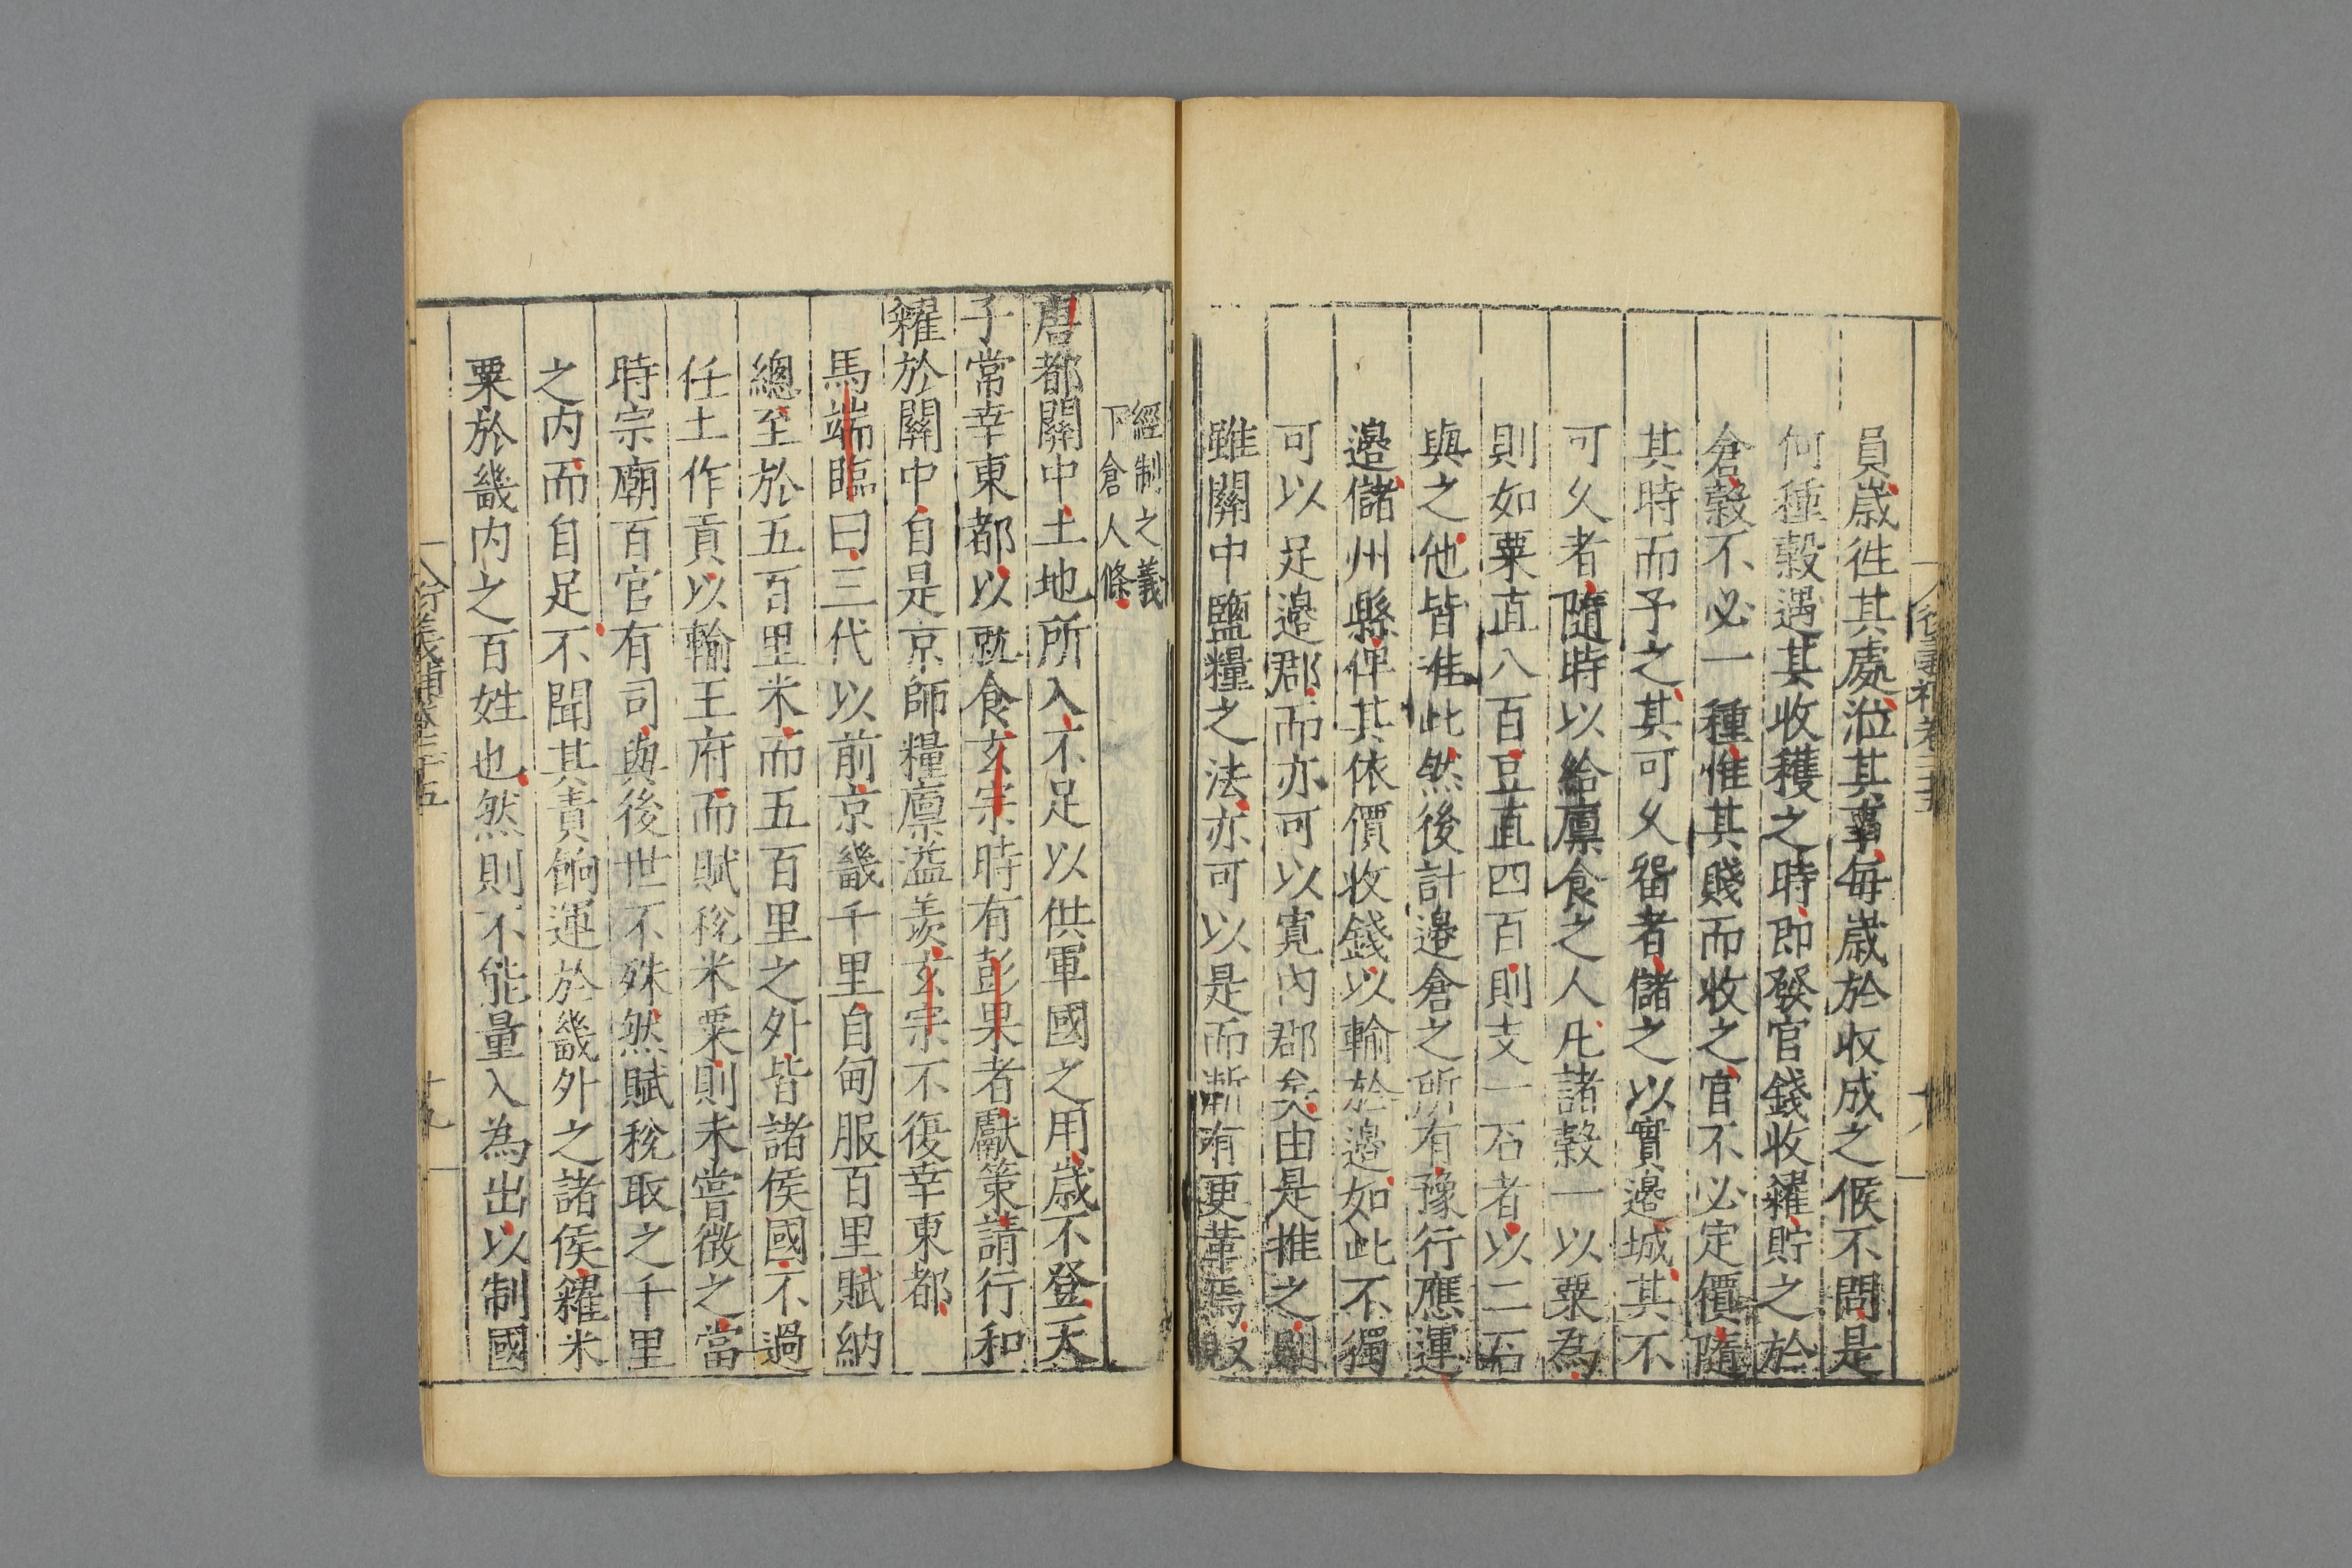 員歲徃其處涖其事每歲於收成之候不問是
何種穀遇其收穫之時即發官錢收糴貯之於
倉穀不必一種惟其賤而收之官不必定價隨
其時而予之其可久畱者儲之以實邉城其不
可久者隨時以給廪食之人凡諸穀一以粟為
則如粟直八百豆直四百則支一石者以二石
與之他皆准此然後計邉倉之所有豫行應運
邉儲州縣俾其依價收錢以輸於邉如此不獨
可以足邉郡而亦可以寛内郡矣由是推之則
雖關中鹽糧之法亦可以是而漸有更革焉
經制之義
下倉人條
唐都關中土地所入不足以供軍國之用歲不登天
子常幸東都以就食玄宗時有彭果者獻策請行和
糴於關中自是京師糧廪溢羡玄宗不復幸東都
馬端臨曰三代以前京畿千里自甸服百里賦納
總至於五百里米而五百里之外皆諸侯國不過
任土作貢以輸王府而賦稅米粟則未嘗徴之當
時宗廟百官有司與後世不殊然賦稅取之千里
之内而自足不聞其責餉運於畿外之諸侯糴米
粟於畿内之百姓也然則不能量入為出以制國